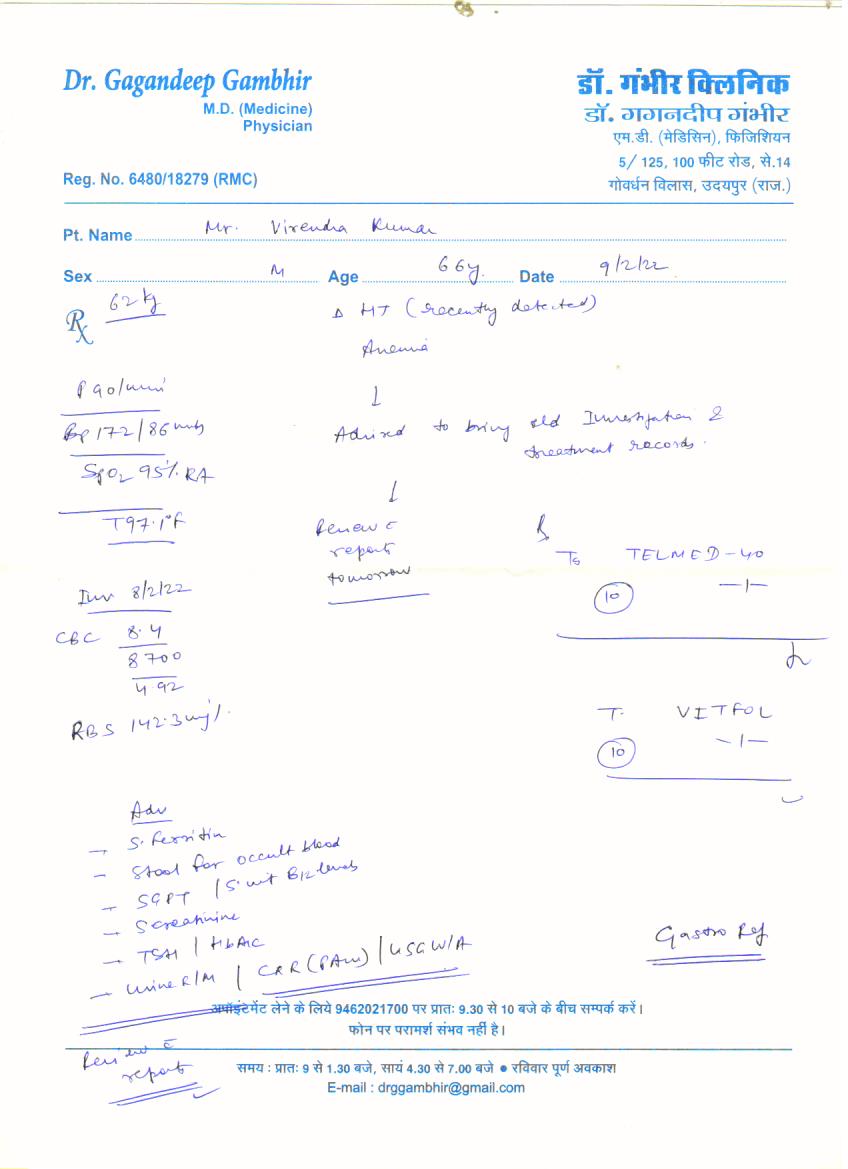 Dr. Gagandeep Gambhir
M.D. (Medicine)
Physician
Reg. No. 6480/18279 (RMC)
डॉ. गंभीर क्लिनिक
डॉ. गगनदीप गंभीर
एम.डी. (मेडिसिन), फिजिशियन
5/ 125, 100 फीट रोड, से.14
गोवर्धन विलास, उदयपुर (राज.)
Pt. Name Mr. Virendra Kumar
Sex M Age 66y. Date 9/2/22
Rx 62 kg
Δ HT (recently detected)
Anemia
P 90/min
Bp 172/86 mmHg
SpO2 95% RA
T 97.1°F
↓
Advised to bring old Investigation &
treatment records.
↓
Review c
report
tomorrow
Inv 8/2/22
CBC 8.4
8700
4.92
RBS 142.3 mg/.
Rx
T. TELMED-40
10 —1—
T. VITFOL
10 —1—
Adv
→ S. Ferritin
– Stool for occult blood
→ SGPT / S. vit B12 levels
→ S creatinine
→ TSH / HbA1c
→ Urine R/M / CXR (PA) / USG W/A
Gastro Ref
अपॉइंटमेंट लेने के लिये 9462021700 पर प्रातः 9.30 से 10 बजे के बीच सम्पर्क करें।
फोन पर परामर्श संभव नहीं है।
Review c
report
समय : प्रातः 9 से 1.30 बजे, सायं 4.30 से 7.00 बजे ● रविवार पूर्ण अवकाश
E-mail : drggambhir@gmail.com